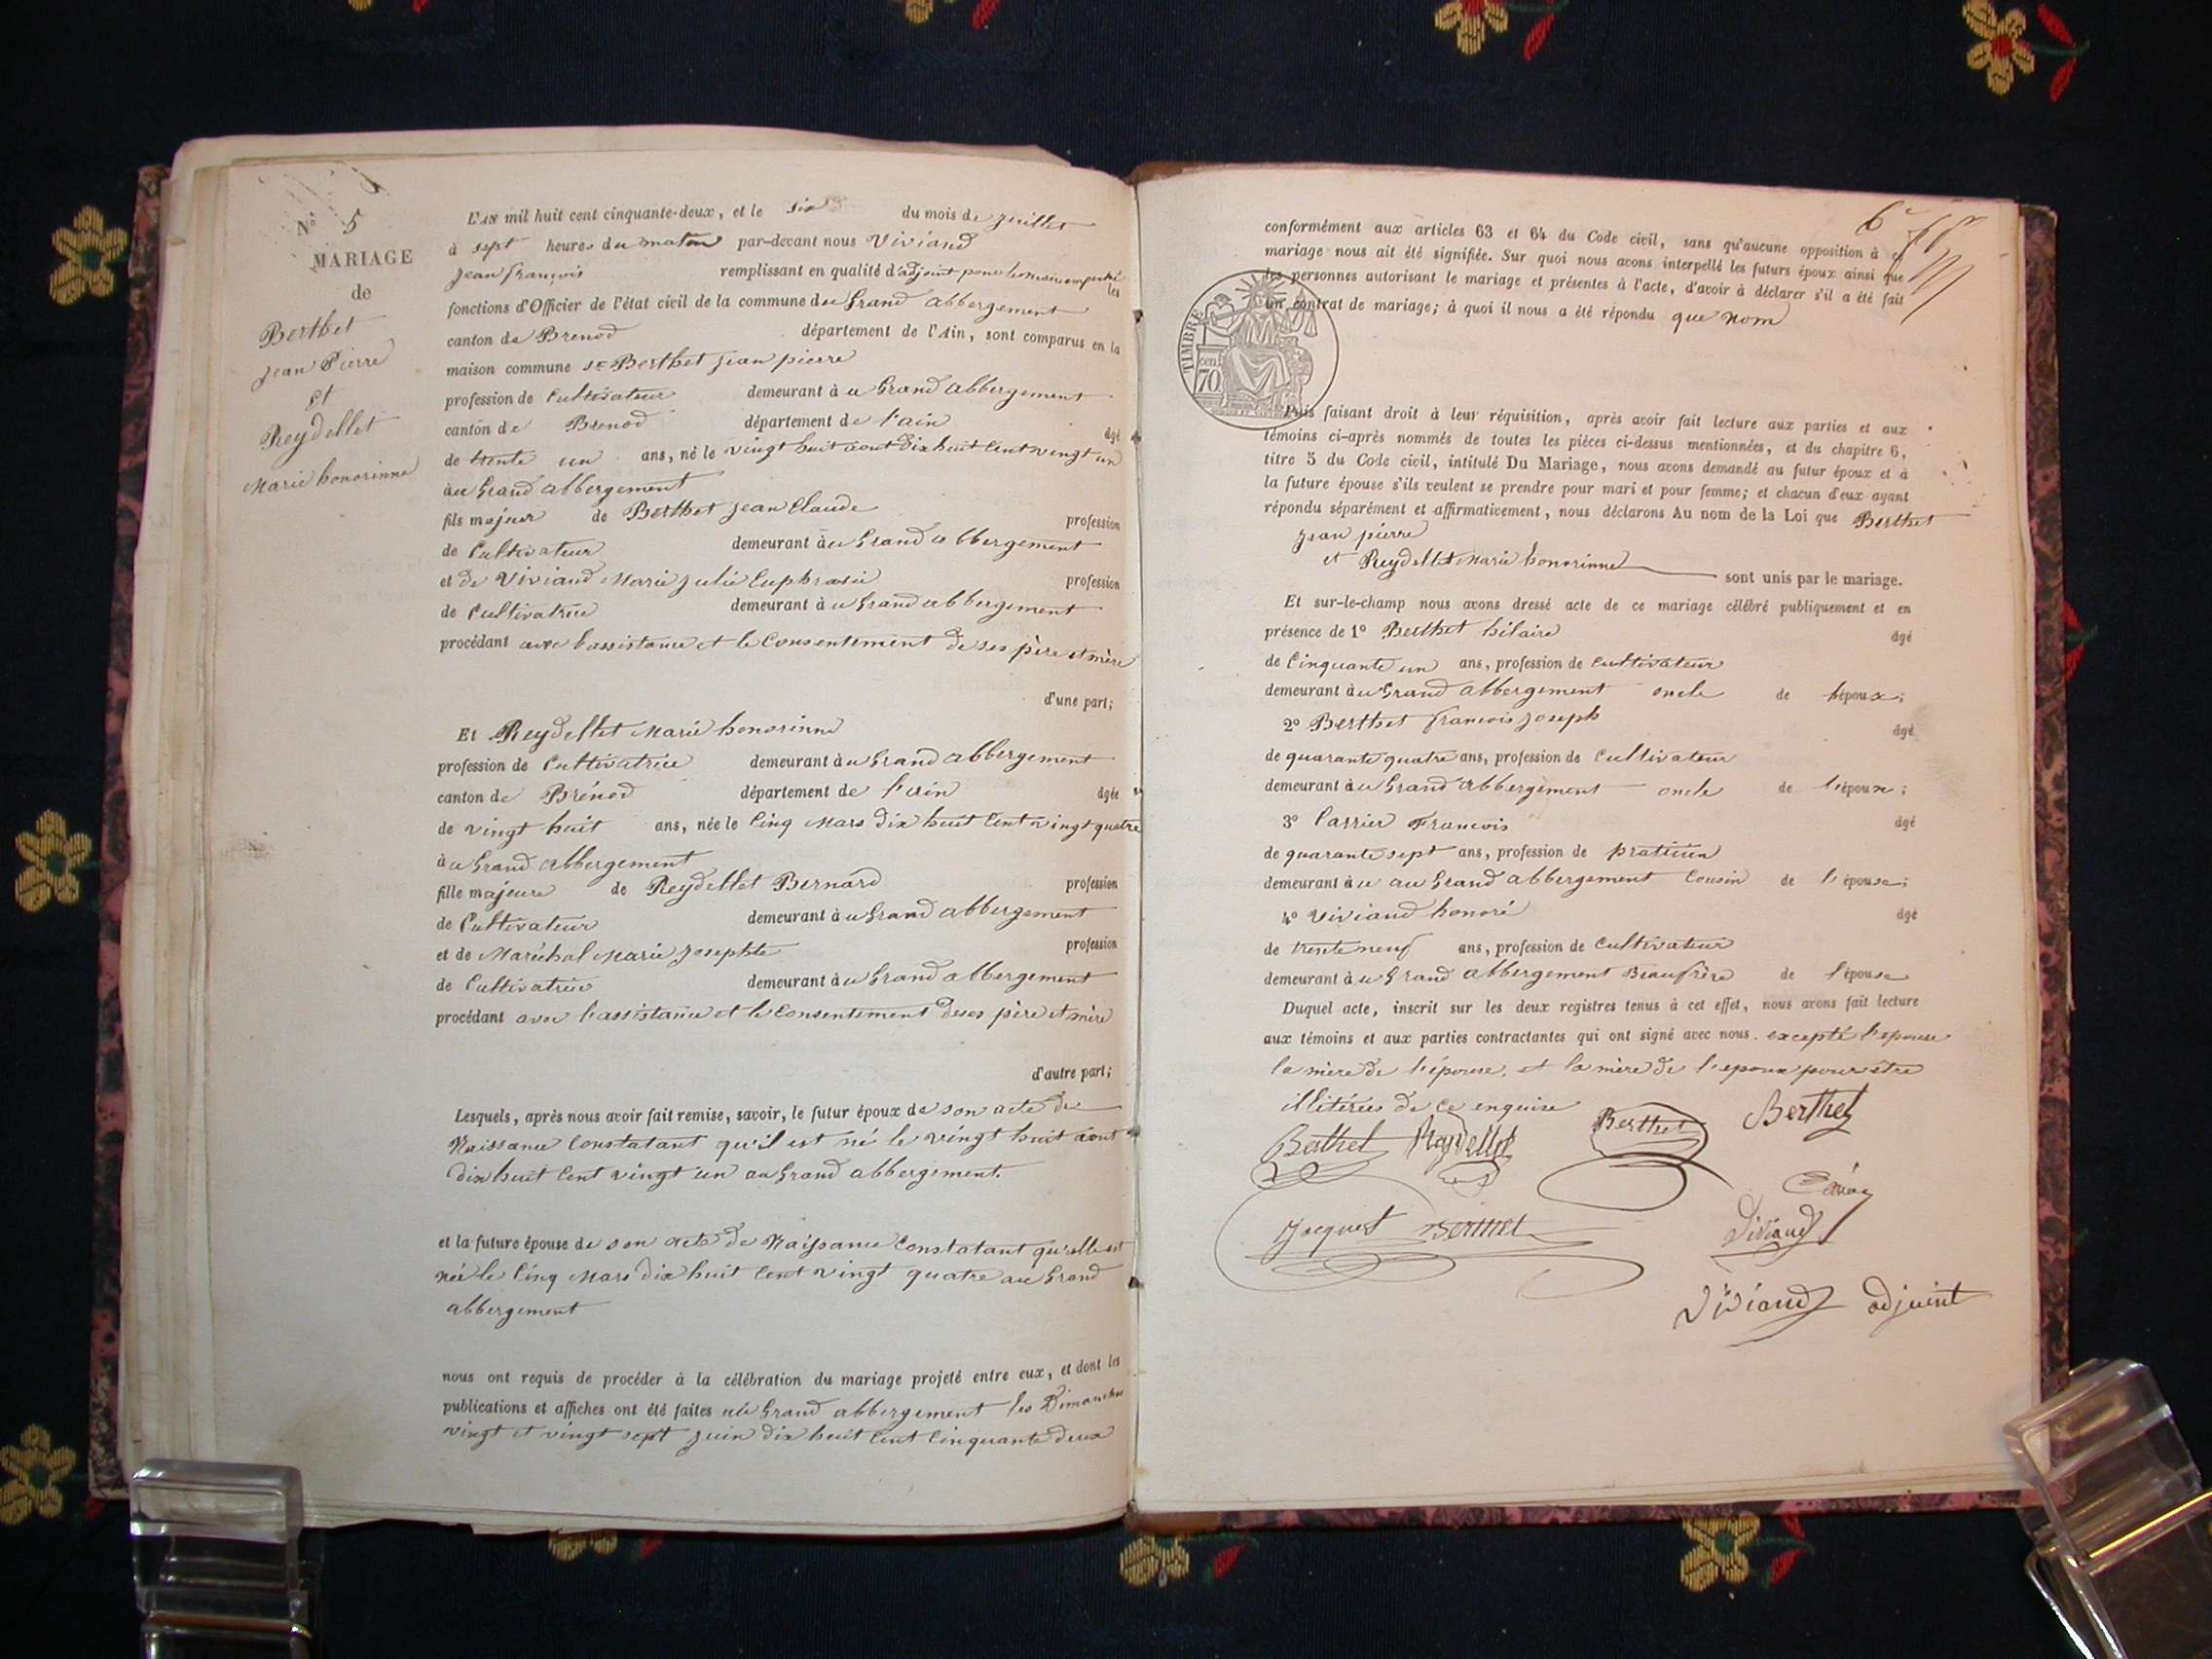 N° 5
MARIAGE
de
Berthet
jean Pierre
et
Reydellet
Marie honorinne
L'AN mil huit cent cinquante-deux, et le six du mois de juillet
à sept heures du maton par-devant nous Viviand
jean françois remplissant en qualité d'adjoint pour le maire les
fonctions d'Officier de l'état civil de la commune du Grand abbergement
canton de Brenod département de l'Ain, sont comparus en la
maison commune sr Berthet jean pierre
profession de Cultivateur demeurant à u Grand abbergement
canton de Brenod département de l'ain âgé
de trente un ans, né le vingt huit aout dix huit Cent vingt un
à u Grand abbergement
fils majeur de Berthet jean Claude profession
de Cultivateur demeurant à u Grand abbergement
et de Viviand Marie julie Euphrasie profession
de Cultivatrice demeurant à u Grand abbergement
procédant avec l'assistance et le Consentement de ses père et mère
d'une part;
Et Reydellet Marie honorinne
profession de Cultivatrice demeurant à u Grand abbergement
canton de Brénod département de l'ain âgée
de vingt huit ans, née le Cinq Mars dix huit Cent vingt quatre
à u Grand abbergement
fille majeure de Reydellet Bernard profession
de Cultivateur demeurant à u Grand abbergement
et de Maréchal Marie josephte profession
de Cultivatrice demeurant à u Grand abbergement
procédant avec l'assistance et le Consentement de ses père et mère
d'autre part;
Lesquels, après nous avoir fait remise, savoir, le futur époux de son acte de
Naissance Constatant qu'il est né le vingt huit aout
dix huit Cent vingt un au Grand abbergement.
et la future épouse de son acte de Naissance Constatant qu'elle est
née le Cinq Mars dix huit Cent vingt quatre au Grand
abbergement
nous ont requis de procéder à la célébration du mariage projeté entre eux, et dont les
publications et affiches ont été faites au Grand abbergement les Dimanches
vingt et vingt sept juin dix huit Cent Cinquante deux
6e
conformément aux articles 63 et 64 du Code civil, sans qu'aucune opposition à ce
mariage nous ait été signifiée. Sur quoi nous avons interpellé les futurs époux ainsi que
les personnes autorisant le mariage et présentes à l'acte, d'avoir à déclarer s'il a été fait
un contrat de mariage; à quoi il nous a été répondu que nom
TIMBRE
70 cen
Puis faisant droit à leur réquisition, après avoir fait lecture aux parties et aux
témoins ci-après nommés de toutes les pièces ci-dessus mentionnées, et du chapitre 6,
titre 5 du Code civil, intitulé Du Mariage, nous avons demandé au futur époux et à
la future épouse s'ils veulent se prendre pour mari et pour femme; et chacun d'eux ayant
répondu séparément et affirmativement, nous déclarons Au nom de la Loi que Berthet
jean pierre
et Reydellet Marie honorinne sont unis par le mariage.
Et sur-le-champ nous avons dressé acte de ce mariage célébré publiquement et en
présence de 1° Berthet hilaire âgé
de Cinquante un ans, profession de Cultivateur
demeurant à u Grand abbergement oncle de l'époux;
2° Berthet francois joseph âgé
de quarante quatre ans, profession de Cultivateur
demeurant à u Grand abbergement oncle de l'époux;
3° Carrier Francois âgé
de quarante sept ans, profession de praticien
demeurant à u au Grand abbergement Cousin de l'épouse;
4° Viviand honoré âgé
de trente neuf ans, profession de Cultivateur
demeurant à u Grand abbergement Beaufrère de l'épouse
Duquel acte, inscrit sur les deux registres tenus à cet effet, nous avons fait lecture
aux témoins et aux parties contractantes qui ont signé avec nous. excepté l'epouse
la mère de l'épouse. et la mère de l'epoux pour etre
illitérées de ce enquise
Berthet Reydellet Berthet Berthet
Jacquet Bonnet Viviand
Viviand adjoint